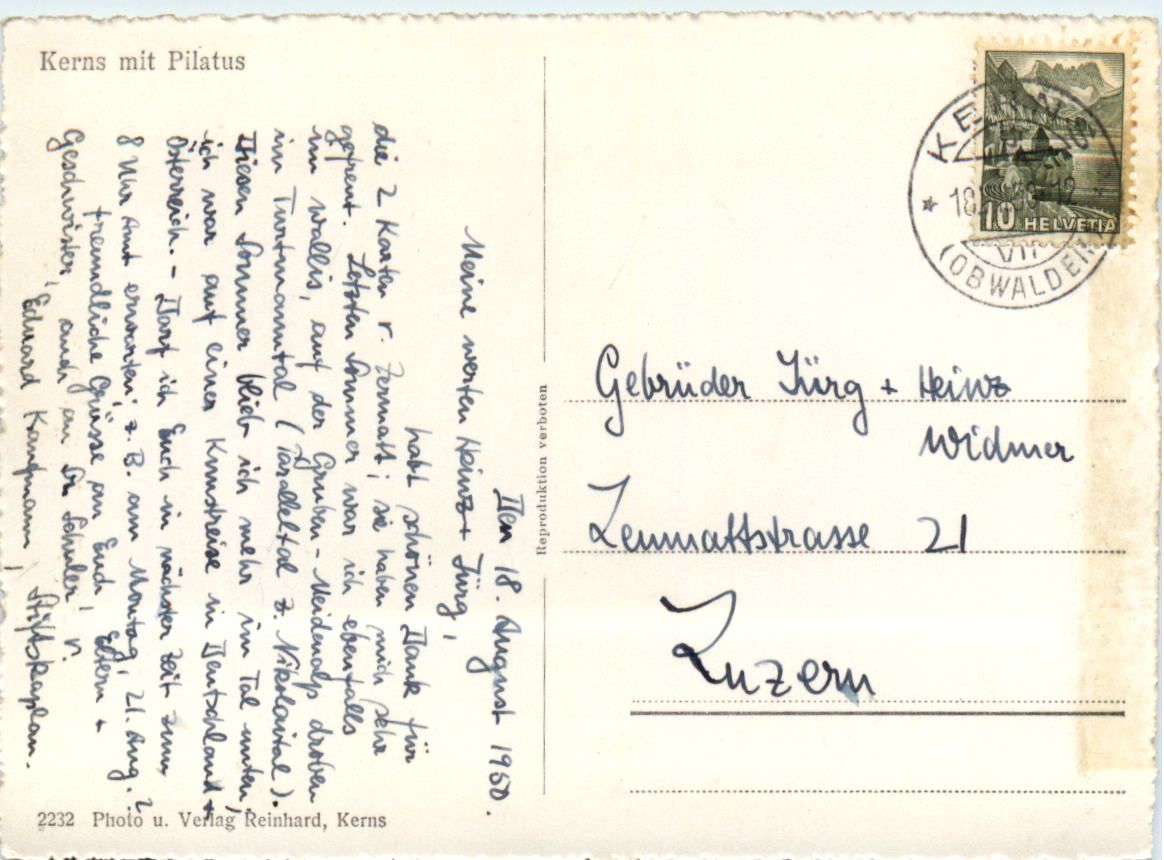 Kerns mit Pilatus
Den 18. August 1950.
Meine werten Heinz + Jürg,
habt schönen Dank für
die 2 Karten v. Zermatt; sie haben mich sehr
gefreut. Letzten Sommer war ich ebenfalls
im Wallis, auf der Gruben-Meidenalp droben
im Turtmanntal (Paralleltal z. Nikolaital).
Diesen Sommer blieb ich mehr im Tal unten;
ich war auf einer Kunstreise in Deutschland +
Österreich. - Darf ich Euch in nächster Zeit zum
8 Uhr Amt erwarten; z. B. am Montag, 21. Aug.?
Freundliche Grüsse an Euch, Eltern +
Geschwister, auch an Sr. Schuler! v.
Eduard Kaufmann, Stiftskaplan.
2232 Photo u. Verlag Reinhard, Kerns
Reproduktion verboten
10 HELVETIA
KERNS
18.
VII
(OBWALDEN)
Gebrüder Jürg + Heinz
Widmer
Zenmattstrasse 21
Luzern